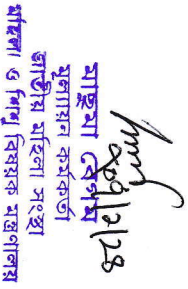 বেগম
মূল্যায়ন কর্মকর্তা
জাতীয় মহিলা সংস্থা
মহিলা ও শিশু বিষয়ক মন্ত্রণালয়